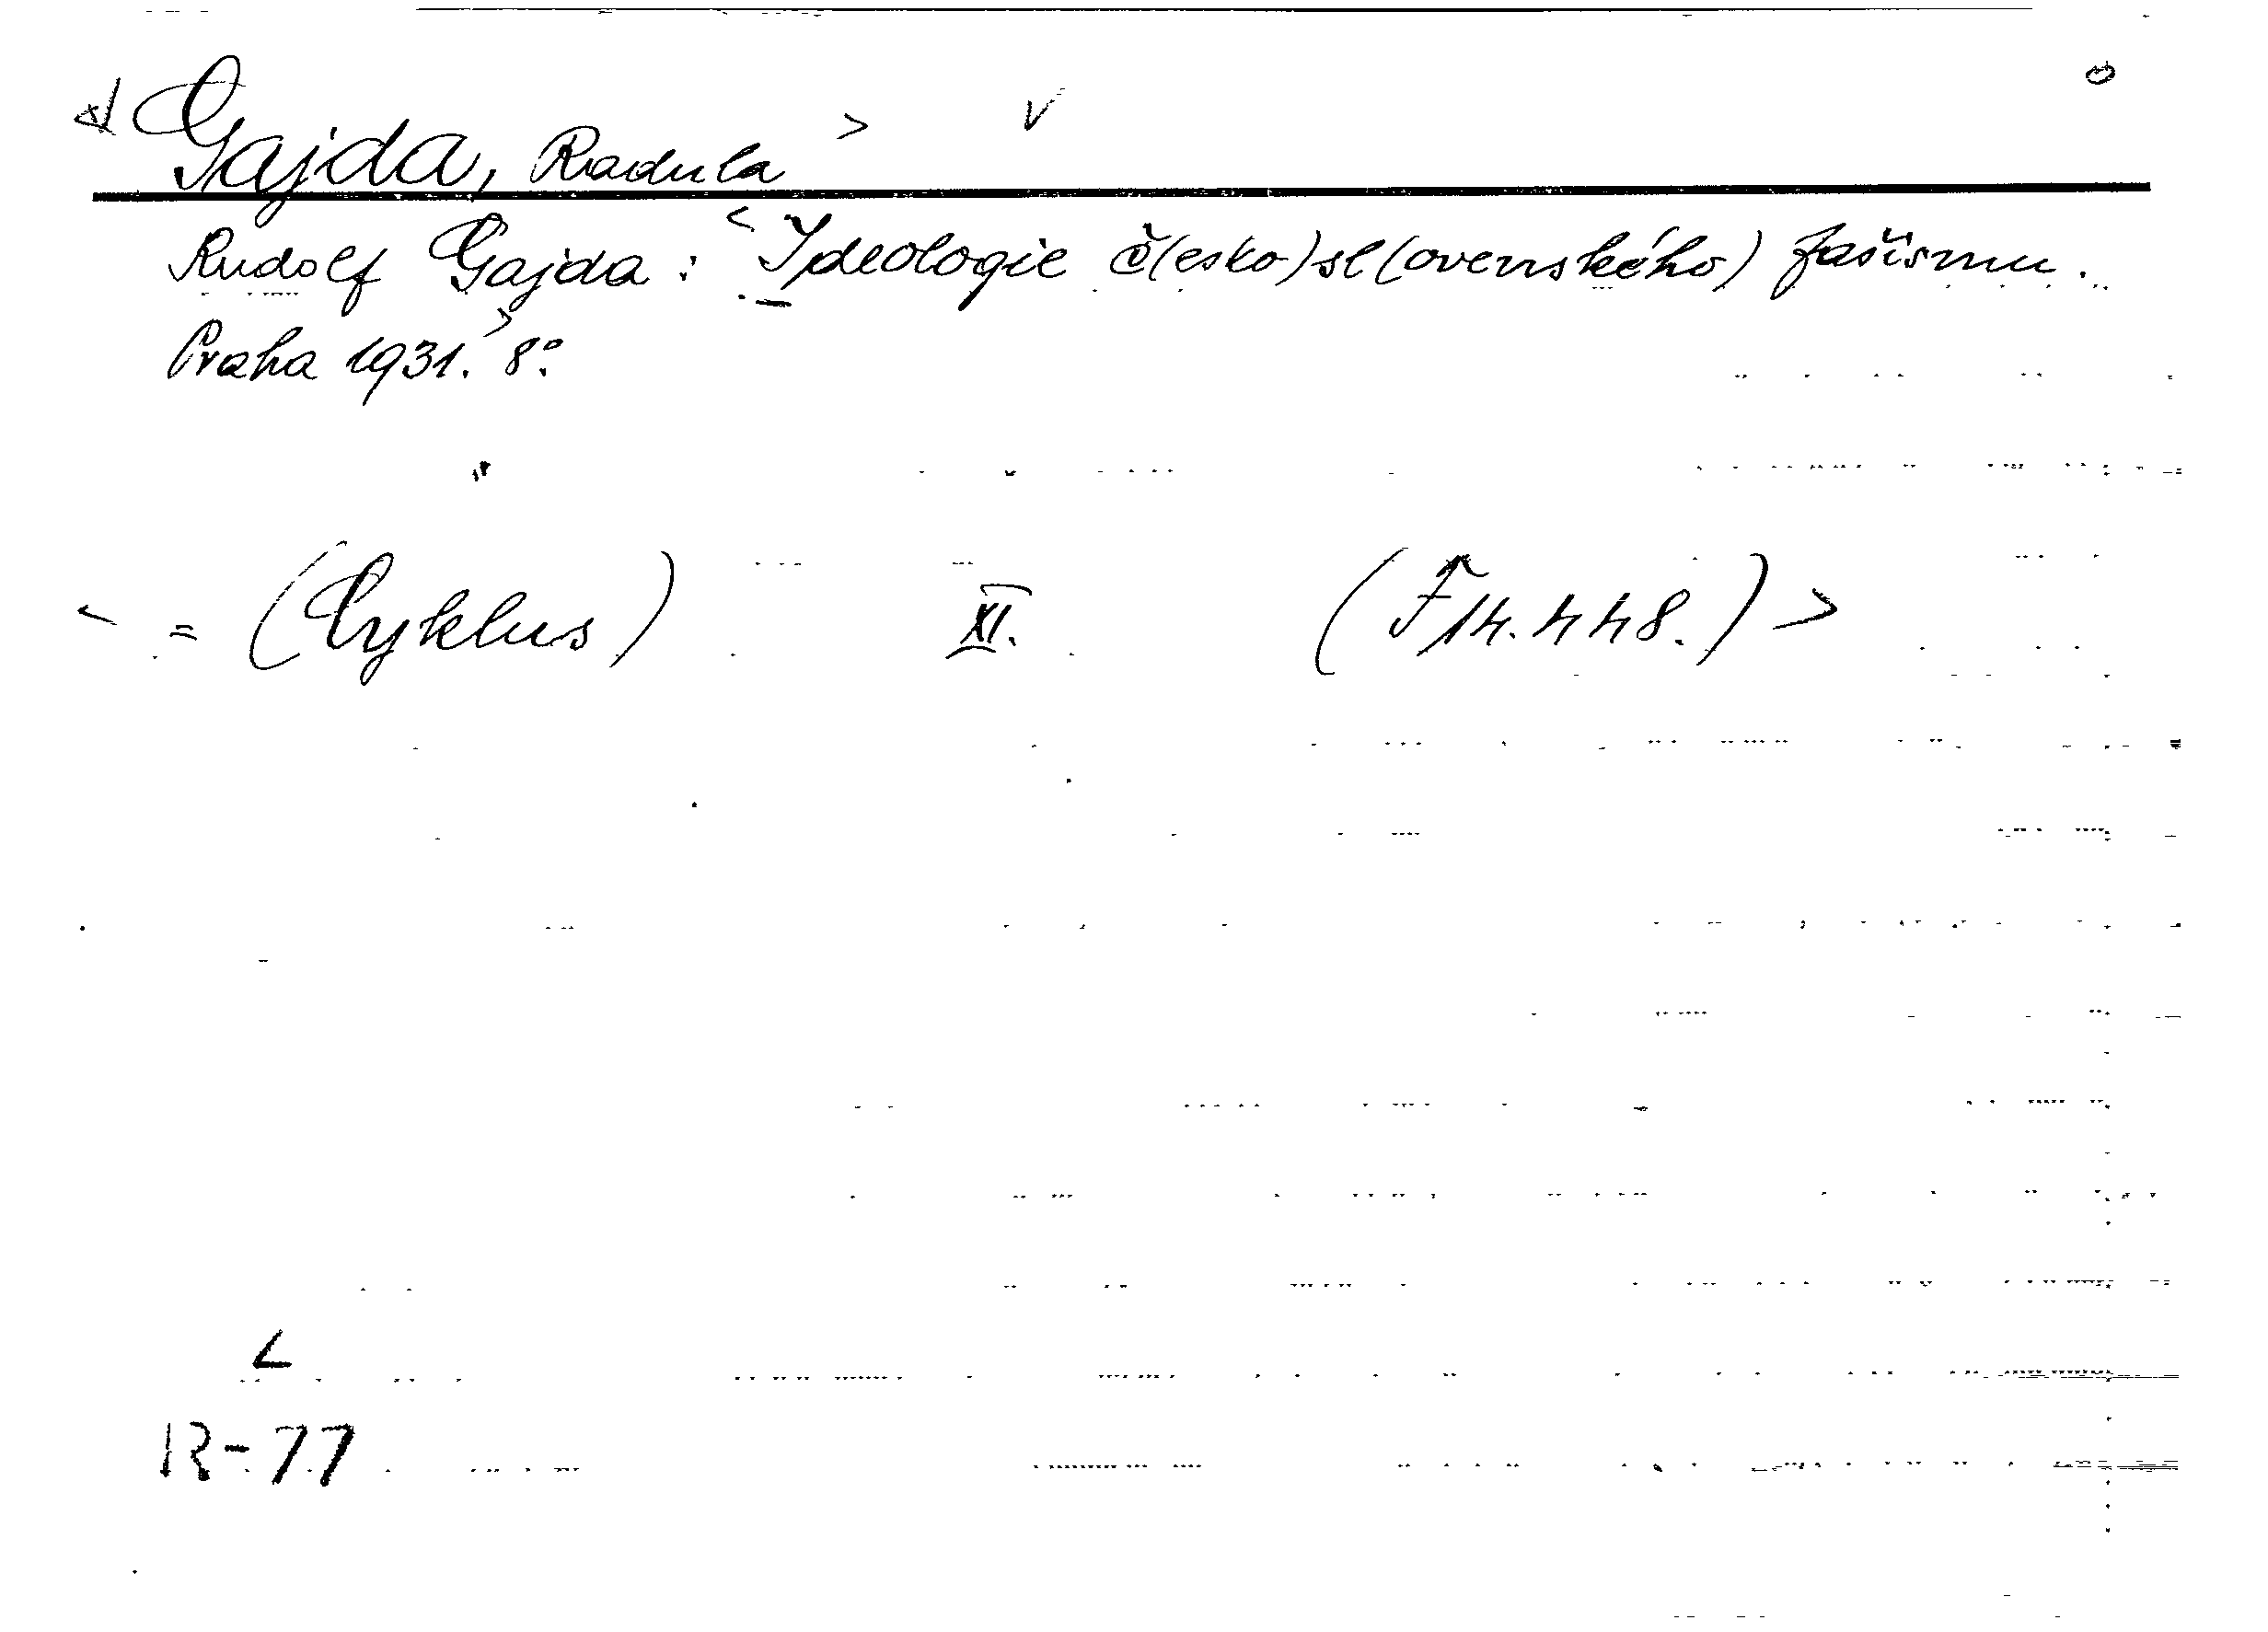 Gajda, Radula > V
Rudolf Gajda: < Ideologie č(esko)sl(ovenského) fašismu.
Praha 1931. > 8°.
< = (Cyklus) XI. (F 14.448.) >
R-77